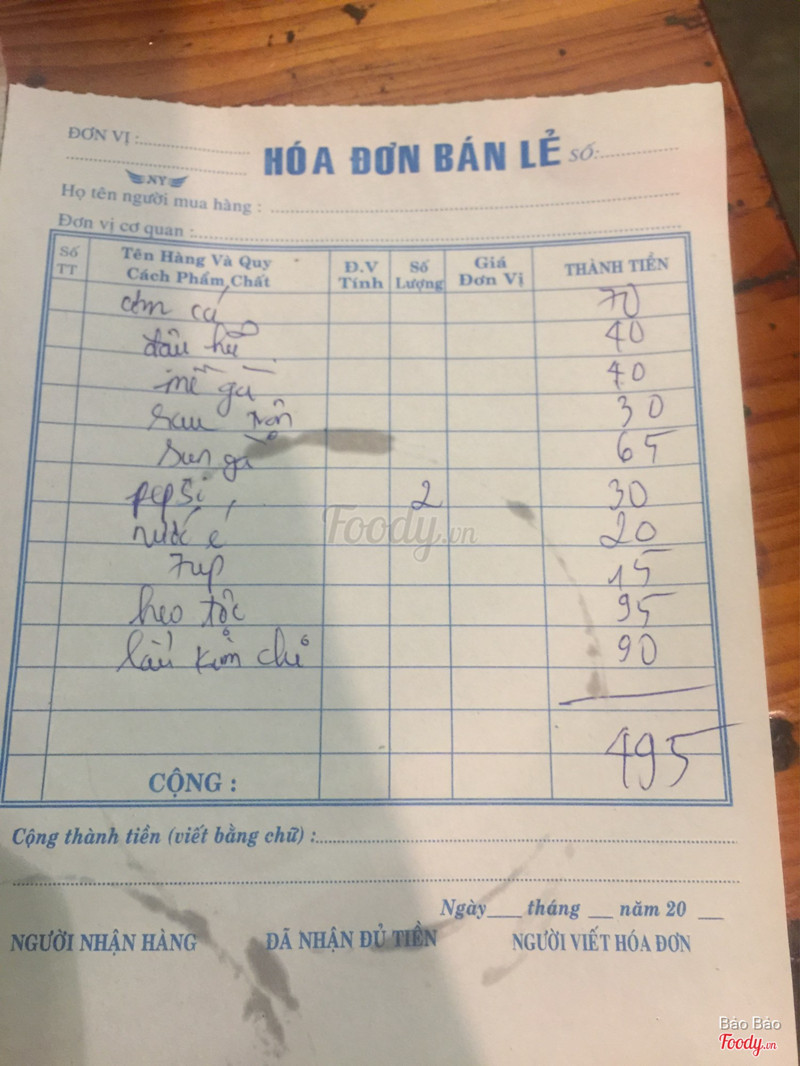 ĐƠN VỊ :
HÓA ĐƠN BÁN LẺ SỐ:
NY
Họ tên người mua hàng :
Đơn vị cơ quan :
Số TT Tên Hàng Và Quy Cách Phẩm Chất Đ.V Tính Số Lượng Giá Đơn Vị THÀNH TIỀN
cơm cá 70
đâu hủ 40
mề gà 40
rau trộn 30
sụn gà 65
pepsi 2 30
nước é 20
7up 15
heo tộc 95
lẩu kim chi 90
495
CỘNG :
Cộng thành tiền (viết bằng chữ) :
Ngày tháng năm 20
NGƯỜI NHẬN HÀNG ĐÃ NHẬN ĐỦ TIỀN NGƯỜI VIẾT HÓA ĐƠN
Foody.vn
Bảo Bảo
Foody.vn